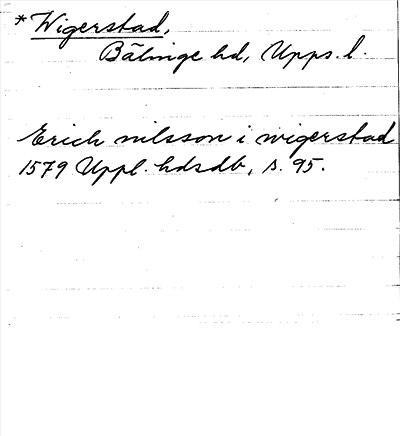 * Wigerstad,
Bälinge hd, Upps. l.
Erich nilsson i wigerstad
1579 Uppl. hdsdb, s. 95.